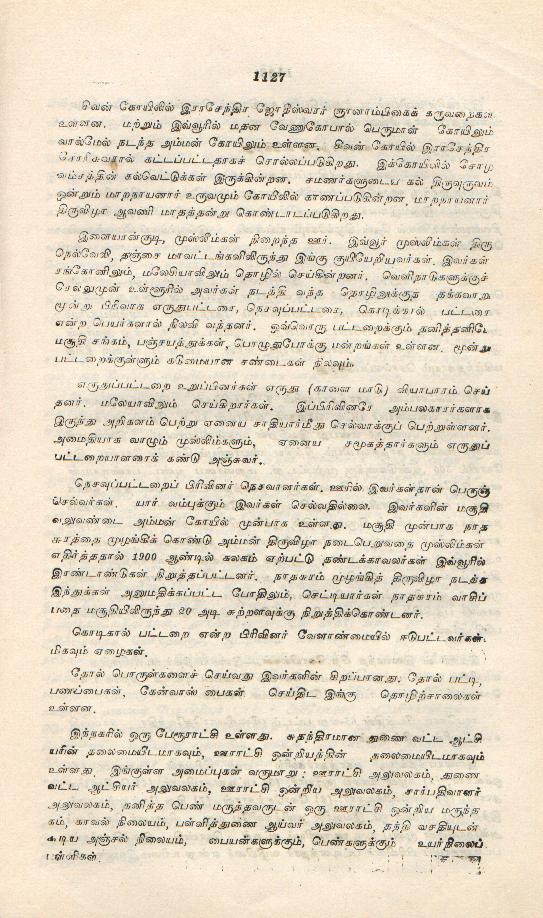 1127
சிவன் கோயிலில் இராசேந்திர ஜோதீஸ்வரர் ஞானாம்பிகைக் கருவறைகள்
உள்ளன. மற்றும் இவ்வூரில் மதன வேணுகோபால் பெருமாள் கோயிலும்
வாள்மேல் நடந்த அம்மன் கோயிலும் உள்ளன. சிவன் கோயில் இராசேந்திர
சோழரவால் கட்டப்பட்டதாகச் சொல்லப்படுகிறது. இக்கோயிலில் சோழ
வம்சத்தின் கல்வெட்டுக்கள் இருக்கின்றன. சமணர்களுடைய கல் திருவுருவம்
ஒன்றும் மாறநாயனார் உருவமும் கோயிலில் காணப்படுகின்றன. மாறநாயனார்
திருவிழா ஆவணி மாதத்தன்று கொண்டாடப்படுகிறது.
இளையான்குடி, முஸ்லிம்கள் நிறைந்த ஊர். இவ்வூர் முஸ்லிம்கள் திரு
நெல்வேலி, தஞ்சை மாவட்டங்களிலிருந்து இங்கு குடியேறியவர்கள். இவர்கள்
ரங்கோனிலும், மலேயாவிலும் தொழில் செய்கின்றனர். வெளிநாடுகளுக்குச்
செலலுமுன் உள்ளூரில் அவர்கள் நடத்தி வந்த தொழிலுக்குத் தக்கவாறு
மூன்று பிரிவாக எருதுபட்டரை, நெசவுப்பட்டரை, கொடிக்கால் பட்டரை
என்ற பெயர்களால் நிலவி வந்தனர். ஒவ்வொரு பட்டறைக்கும் தனித்தனியே
மசூதி சங்கம், பஞ்சாயத்துக்கள், பொழுதுபோக்கு மன்றங்கள் உள்ளன. மூன்று
பட்டறைக்குள்ளும் கடுமையான சண்டைகள் நிலவும்.
எருதுப்பட்டறை உறுப்பினர்கள் எருது (காளை மாடு) வியாபாரம் செய்
தனர். மலேயாவிலும் செய்கிறார்கள். இப்பிரிவினரே அம்பலகாரர்களாக
இருந்து அதிகளம் பெற்று ஏனைய சாதியார்மீது செல்வாக்குப் பெற்றுள்ளனர்.
அமைதியாக வாழும் முஸ்லிம்களும், ஏனைய சமூகத்தார்களும் எருதுப்
பட்டறையாளரைக் கண்டு அஞ்சுவர்.
நெசவுப்பட்டறைப் பிரிவினர் நெசவாளர்கள். ஊரில் இவர்கள்தான் பெருஞ்
செல்வர்கள். யார் வம்புக்கும் இவர்கள் செல்வதில்லை. இவர்களின் மசூதி
வலுவண்டை அம்மன் கோயில் முன்பாக உள்ளது. மசூதி முன்பாக நாத
சுரத்தை முழங்கிக் கொண்டு அம்மன் திருவிழா நடைபெறுவதை முஸ்லிம்கள்
எதிர்த்ததால் 1900 ஆண்டில் கலகம் ஏற்பட்டு தண்டக்காவலர்கள் இவ்வூரில்
இரண்டாண்டுகள் நிறுத்தப்பட்டனர். நாதசுரம் முழங்கித் திருவிழா நடக்க
இந்துக்கள் அனுமதிக்கப்பட்ட போதிலும், செட்டியார்கள் நாதசுரம் வாசிப்
பதை மசூதியிலிருந்து 20 அடி சுற்றளவுக்கு நிறுத்திக்கொண்டனர்.
கொடிகால் பட்டறை என்ற பிரிவினர் வேளாண்மையில் ஈடுபட்டவர்கள்.
மிகவும் ஏழைகள்.
தோல் பொருள்களைச் செய்வது இவர்களின் சிறப்பானது. தோல் பட்டி,
பணப்பைகள், கேன்வாஸ் பைகள் செய்திட இங்கு தொழிற்சாலைகள்
உள்ளன.
இந்நகரில் ஒரு பேரூராட்சி உள்ளது. சுதந்திரமான துணை வட்ட ஆட்சி
யரின் தலைமையிடமாகவும், ஊராட்சி ஒன்றியத்தின் தலைமையிடமாகவும்
உள்ளது. இங்குள்ள அமைப்புகள் வருமாறு : ஊராட்சி அலுவலகம், துணை
வட்ட ஆட்சியர் அலுவலகம், ஊராட்சி ஒன்றிய அலுவலகம், சார்பதிவாளர்
அலுவலகம், தனித்த பெண் மருத்துவருடன் ஒரு ஊராட்சி ஒன்றிய மருந்த
கம், காவல் நிலையம், பள்ளித்துணை ஆய்வர் அலுவலகம், தந்தி வசதியுடன்
கூடிய அஞ்சல் நிலையம், பையன்களுக்கும், பெண்களுக்கும் உயர்நிலைப்
பள்ளிகள்.